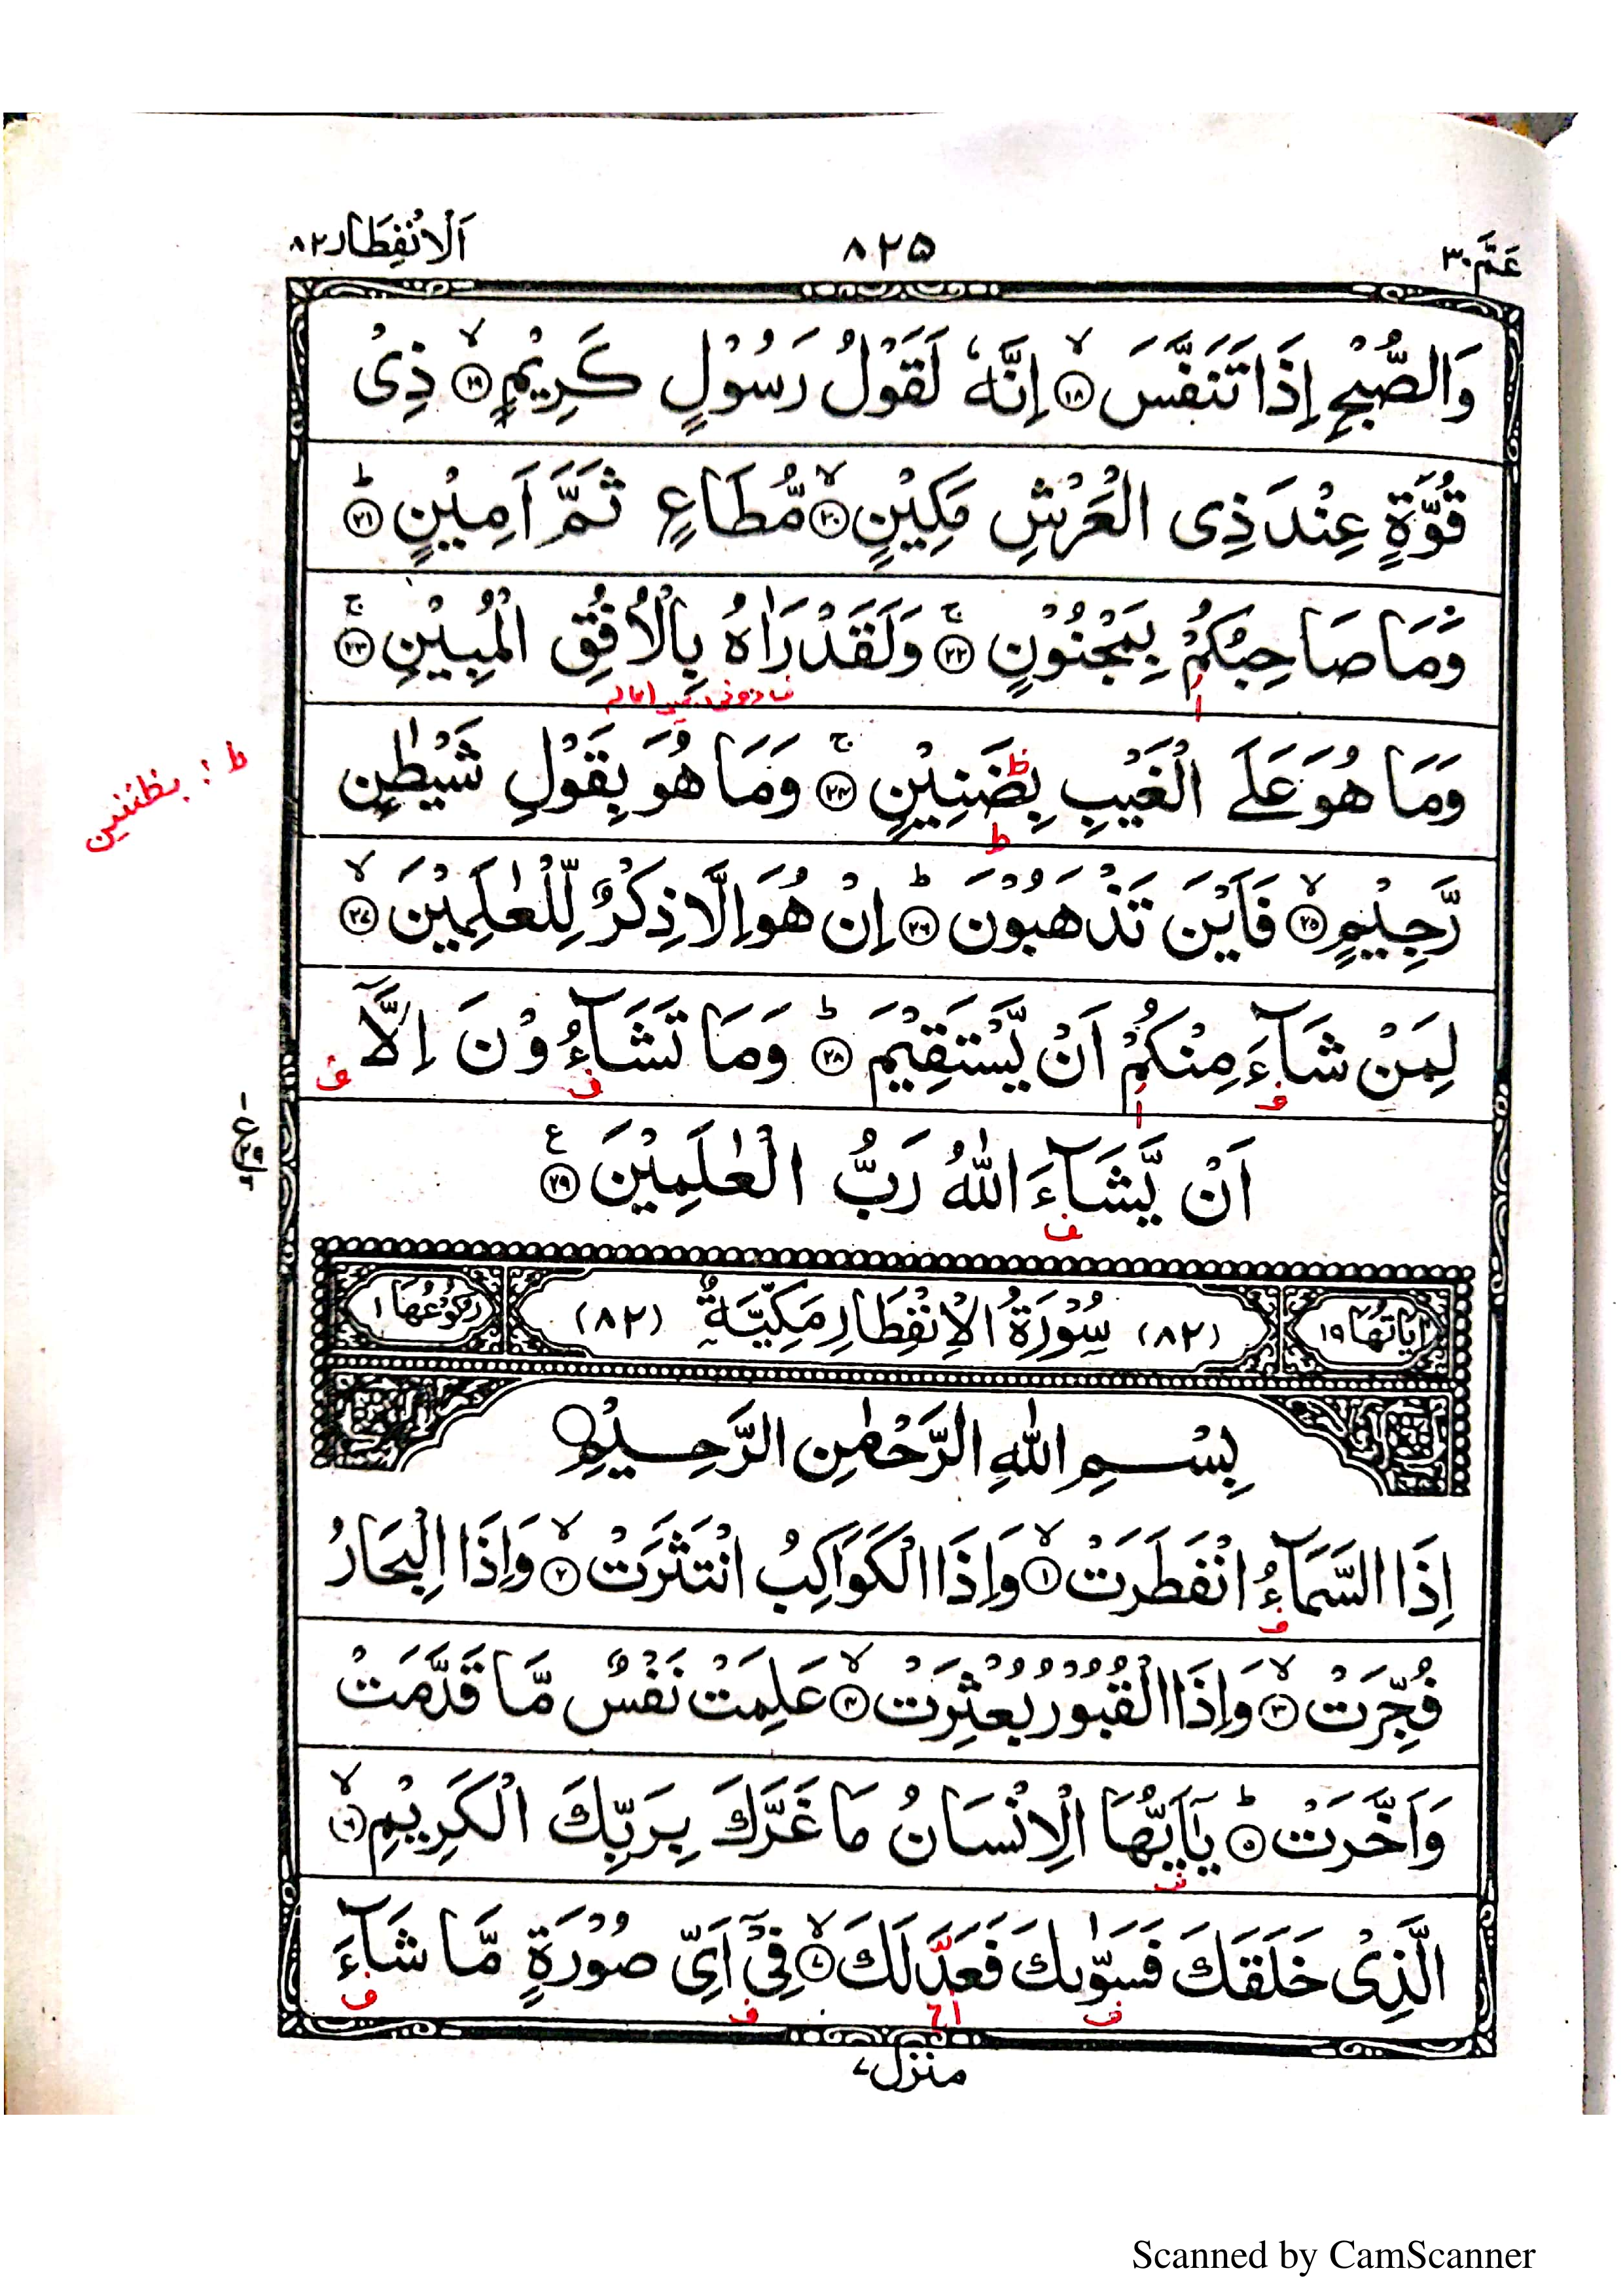 عَمَّ ٣٠
٨٢٥
اَلْاِنْفِطَار ٨٢
وَالصُّبْحِ اِذَا تَنَفَّسَ ۙ‏﴿۱۸﴾ اِنَّهٗ لَقَوْلُ رَسُوْلٍ كَرِيْمٍ ۙ‏﴿۱۹﴾ ذِىْ
قُوَّةٍ عِنْدَ ذِى الْعَرْشِ مَكِيْنٍ ۙ‏﴿۲۰﴾ مُّطَاعٍ ثَمَّ اَمِيْنٍ ؕ‏﴿۲۱﴾
وَمَا صَاحِبُكُمْ بِمَجْنُوْنٍ ۚ‏﴿۲۲﴾ وَلَقَدْ رَاٰهُ بِالْاُفُقِ الْمُبِيْنِ ۚ‏﴿۲۳﴾
ا
وَمَا هُوَ عَلَى الْغَيْبِ بِضَنِيْنٍ ۚ‏﴿۲۴﴾ وَمَا هُوَ بِقَوْلِ شَيْطٰنٍ
ط
ط : بظنين
رَّجِيْمٍ ۙ‏﴿۲۵﴾ فَاَيْنَ تَذْهَبُوْنَ ؕ‏﴿۲۶﴾ اِنْ هُوَ اِلَّا ذِكْرٌ لِّلْعٰلَمِيْنَ ۙ‏﴿۲۷﴾
لِمَنْ شَآءَ مِنْكُمْ اَنْ يَّسْتَقِيْمَ ؕ‏﴿۲۸﴾ وَمَا تَشَآءُوْنَ اِلَّاۤ
ف ا ف ف
اَنْ يَّشَآءَ اللّٰهُ رَبُّ الْعٰلَمِيْنَ ‏﴿۲۹﴾ ع
ف
اٰيَاتُهَا ١٩
(٨٢) سُوْرَةُ الْاِنْفِطَارِ مَكِّيَّةٌ (٨٢)
رُكُوْعُهَا ١
بِسْمِ اللّٰهِ الرَّحْمٰنِ الرَّحِيْمِ
اِذَا السَّمَآءُ انْفَطَرَتْ ۙ‏﴿۱﴾ وَاِذَا الْكَوَاكِبُ انْتَثَرَتْ ۙ‏﴿۲﴾ وَاِذَا الْبِحَارُ
ف
فُجِّرَتْ ۙ‏﴿۳﴾ وَاِذَا الْقُبُوْرُ بُعْثِرَتْ ۙ‏﴿۴﴾ عَلِمَتْ نَفْسٌ مَّا قَدَّمَتْ
وَاَخَّرَتْ ؕ‏﴿۵﴾ يٰۤاَيُّهَا الْاِنْسَانُ مَا غَرَّكَ بِرَبِّكَ الْكَرِيْمِ ۙ‏﴿۶﴾
ف
الَّذِىْ خَلَقَكَ فَسَوّٰىكَ فَعَدَّلَكَ ۙ‏﴿۷﴾ فِىْۤ اَىِّ صُوْرَةٍ مَّا شَآءَ
ف اح ف ف
منزل ٧
Scanned by CamScanner